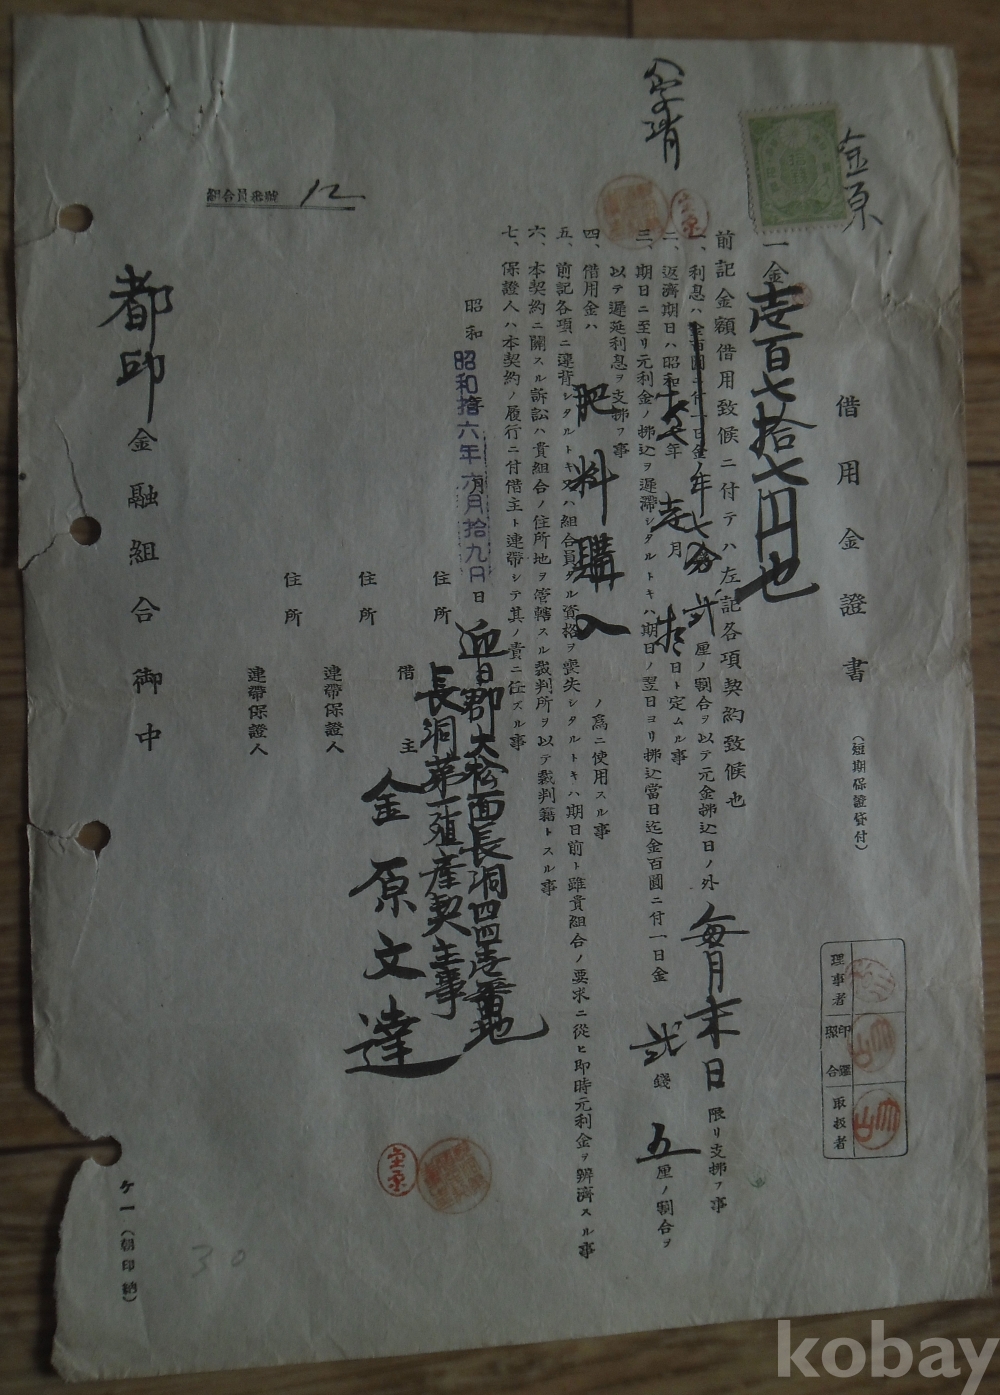 金原
借用金證書
(短期保證貸付)
一金壱百七拾七円也
前記金額借用致候ニ付テハ左記各項契約致候也
一、利息ハ年七分弐厘ノ割合ヲ以テ元金拂込日ノ外毎月末日限リ支拂フ事
二、返濟期日ハ昭和年壱月拾日ト定ムル事
三、期日ニ至リ元利金ノ拂込ヲ遲滯シタルトキハ期日ノ翌日ヨリ拂込當日迄金百圓ニ付一日金弐錢五厘ノ割合ヲ
以テ遲延利息ヲ支拂フ事
四、借用金ハ肥料購入ノ爲ニ使用スル事
五、前記各項ニ違背シタルトキ又ハ組合員タル資格ヲ喪失シタルトキハ期日前ト雖貴組合ノ要求ニ從ヒ即時元利金ヲ辨濟スル事
六、本契約ニ關スル訴訟ハ貴組合ノ住所地ヲ管轄スル裁判所ヲ以テ裁判籍トスル事
七、保證人ハ本契約ノ履行ニ付借主ト連帶シテ其ノ責ニ任ズル事
昭和 年
昭和拾六年 月拾九日
住所 迎日郡大松面長洞四四壱番地
長洞第一殖産契主事
借主 金原文達
住所
連帶保證人
住所
連帶保證人
都印金融組合御中
組合員番號 12
理事者
印鑑照合
取扱者
ケ一(朝印納)
30
kobay